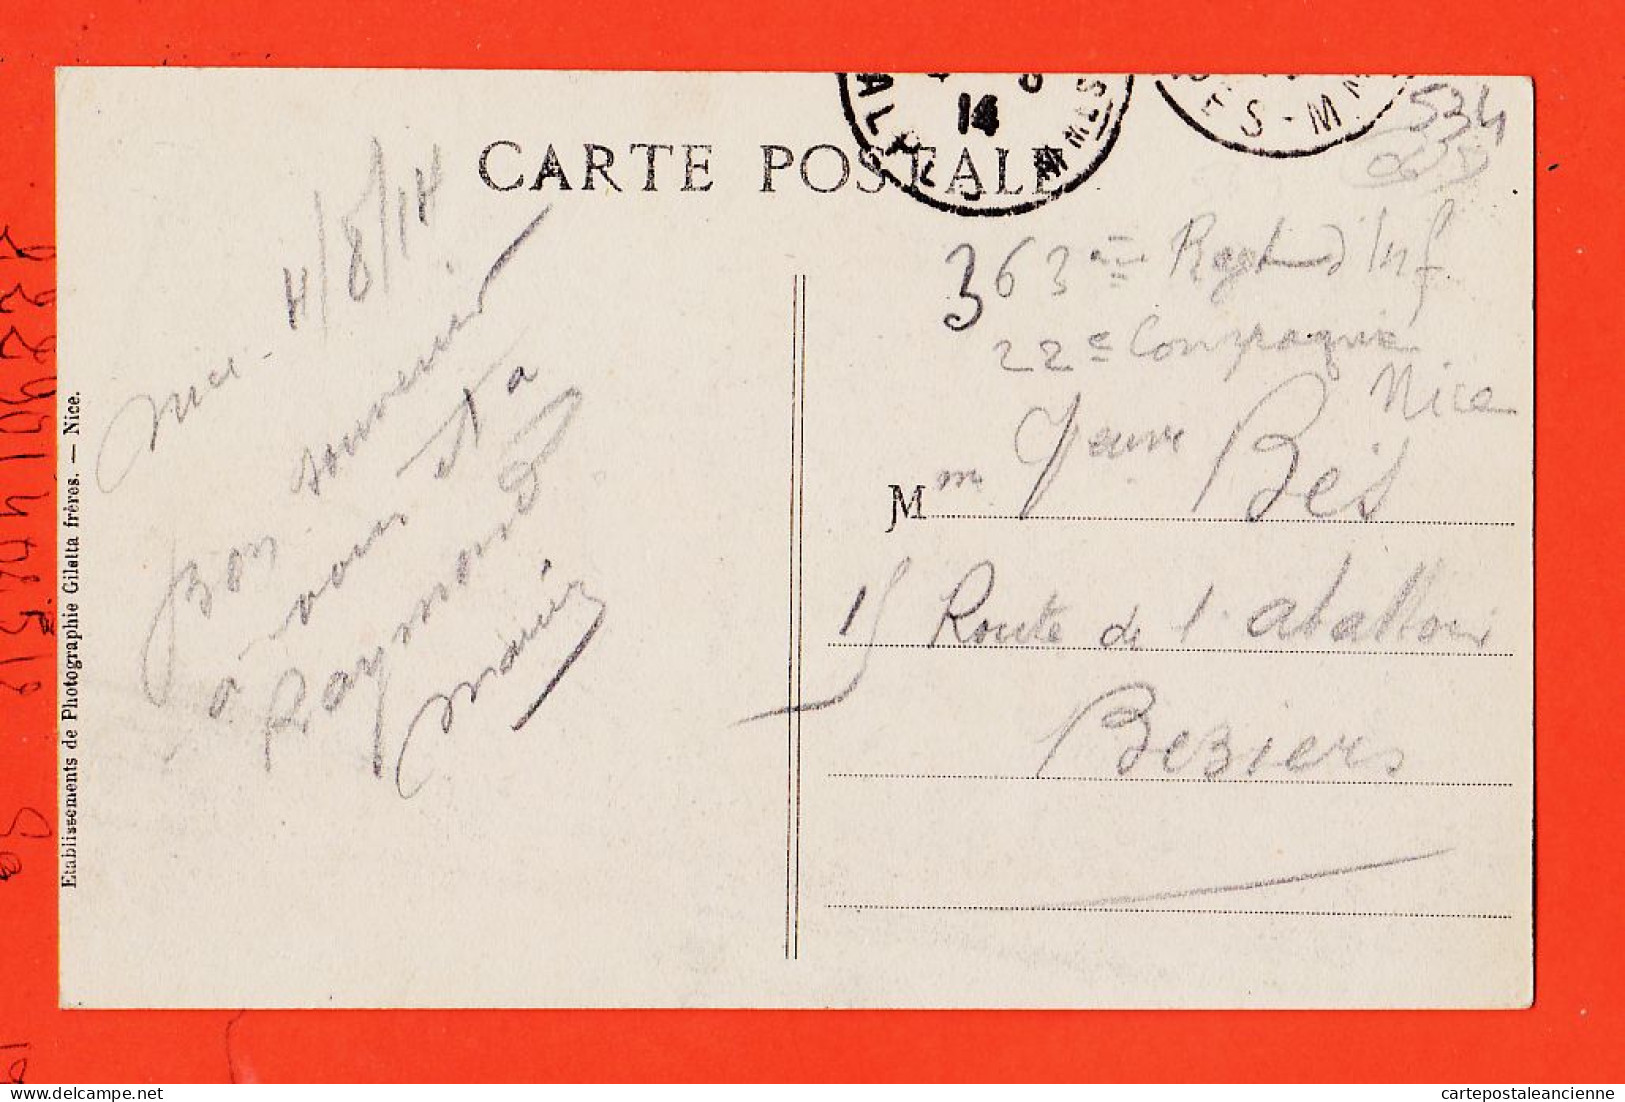 CARTE POSTALE
14
ALPES MMES
ES-MM
534
Nice - 4/8/14
Bon souvenir
à vous et a
Raymond
Marius
363 ème Regt d'Inf
22e Compagnie
Nice
Mm Veuve Bès
15 Route de l'abattoir
Beziers
Etablissements de Photographie Gilatta frères. — Nice.
cartepostaleancienne